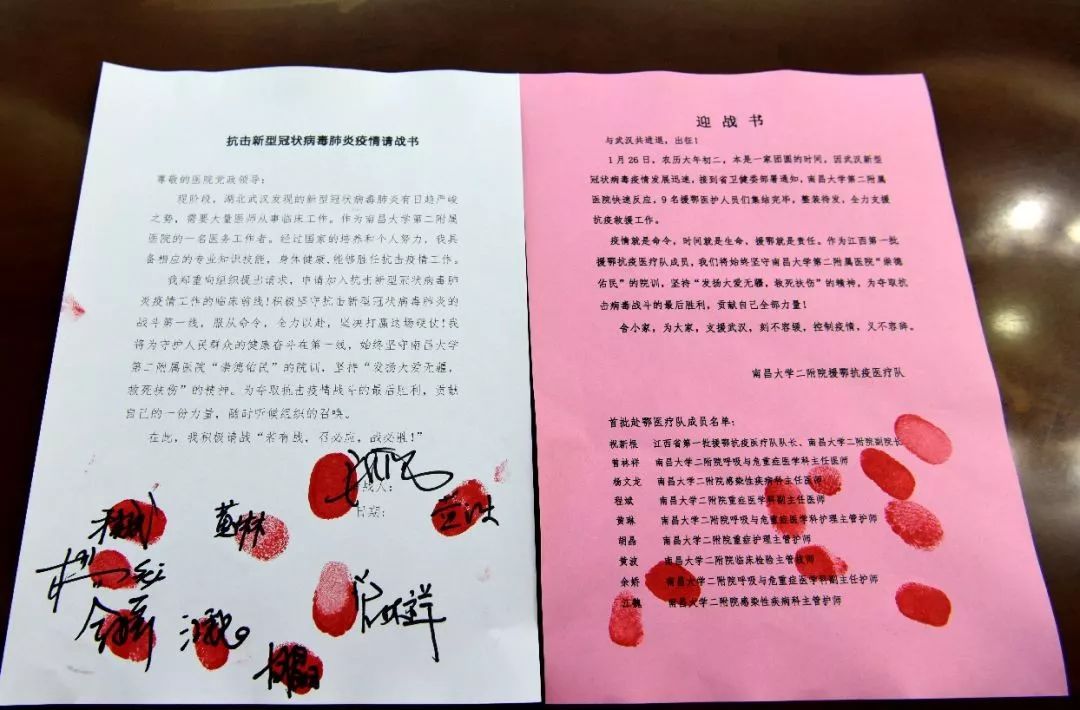 抗击新型冠状病毒肺炎疫情请战书
尊敬的医院党政领导：
现阶段，湖北武汉发现的新型冠状病毒肺炎有日趋严峻
之势，需要大量医师从事临床工作。作为南昌大学第二附属
医院的一名医务工作者。经过国家的培养和个人努力，我具
备相应的专业知识技能，身体健康，能够胜任抗击疫情工作。
我郑重向组织提出请求，申请加入抗击新型冠状病毒肺
炎疫情工作的临床前线！积极坚守抗击新型冠状病毒肺炎的
战斗第一线，服从命令，全力以赴，坚决打赢这场硬仗！我
将为守护人民群众的健康奋斗在第一线，始终坚守南昌大学
第二附属医院“崇德佑民”的院训，坚持“发扬大爱无疆，
救死扶伤”的精神。为夺取抗击疫情战斗的最后胜利，贡献
自己的一份力量，随时听候组织的召唤。
在此，我积极请战“若有战，召必应，战必胜！”
战人：
日期：
黄琳
江魏
迎战书
与武汉共进退，出征！
1月26日，农历大年初二，本是一家团圆的时间，因武汉新型
冠状病毒疫情发展迅速，接到省卫健委部署通知，南昌大学第二附属
医院快速反应，9名援鄂医护人员们集结完毕，整装待发，全力支援
抗疫救援工作。
疫情就是命令，时间就是生命，援鄂就是责任。作为江西第一批
援鄂抗疫医疗队成员，我们将始终坚守南昌大学第二附属医院“崇德
佑民”的院训，坚持“发扬大爱无疆，救死扶伤”的精神，为夺取抗
击病毒战斗的最后胜利，贡献自己全部力量！
舍小家，为大家，支援武汉，刻不容缓，控制疫情，义不容辞。
南昌大学二附院援鄂抗疫医疗队
首批赴鄂医疗队成员名单：
祝新根 江西省第一批援鄂抗疫医疗队队长、南昌大学二附院副院长
曾林祥 南昌大学二附院呼吸与危重症医学科主任医师
杨文龙 南昌大学二附院感染性疾病科主任医师
程斌 南昌大学二附院重症医学科副主任医师
黄琳 南昌大学二附院呼吸与危重症医学科护理主管护师
胡晶 南昌大学二附院重症护理主管护师
黄波 南昌大学二附院临床检验主管技师
余娇 南昌大学二附院呼吸与危重症医学科副主任护师
江魏 南昌大学二附院感染性疾病科主管护师